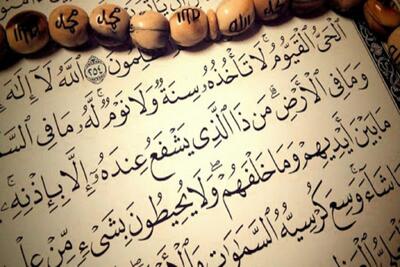 محمد الله
٢٥٤ ٱللَّهُ لَآ إِلَٰهَ
ٱلْحَىُّ ٱلْقَيُّومُ لَا تَأْخُذُهُۥ سِنَةٌ وَلَا نَوْمٌ لَّهُۥ مَا فِى ٱلسَّ
وَمَا فِى ٱلْأَرْضِ مَن ذَا ٱلَّذِى يَشْفَعُ عِندَهُۥٓ إِلَّا بِإِذْنِهِۦ
مَا بَيْنَ أَيْدِيهِمْ وَمَا خَلْفَهُمْ وَلَا يُحِيطُونَ بِشَىْءٍ مِّنْ عِلْ
شَآءَ وَسِعَ كُرْسِيُّهُ ٱلسَّمَٰوَٰتِ وَٱلْأَ